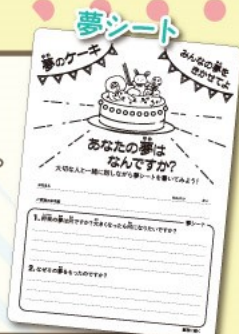 夢シート
夢のケーキ
みんなの夢を
きかせてよ
あなたの夢は
なんですか?
大切な人と一緒に話しながら夢シートを書いてみよう!
夢シート
1. 将来の夢は何ですか?大きくなったら何になりたいですか?
2. なぜその夢をもったのですか?